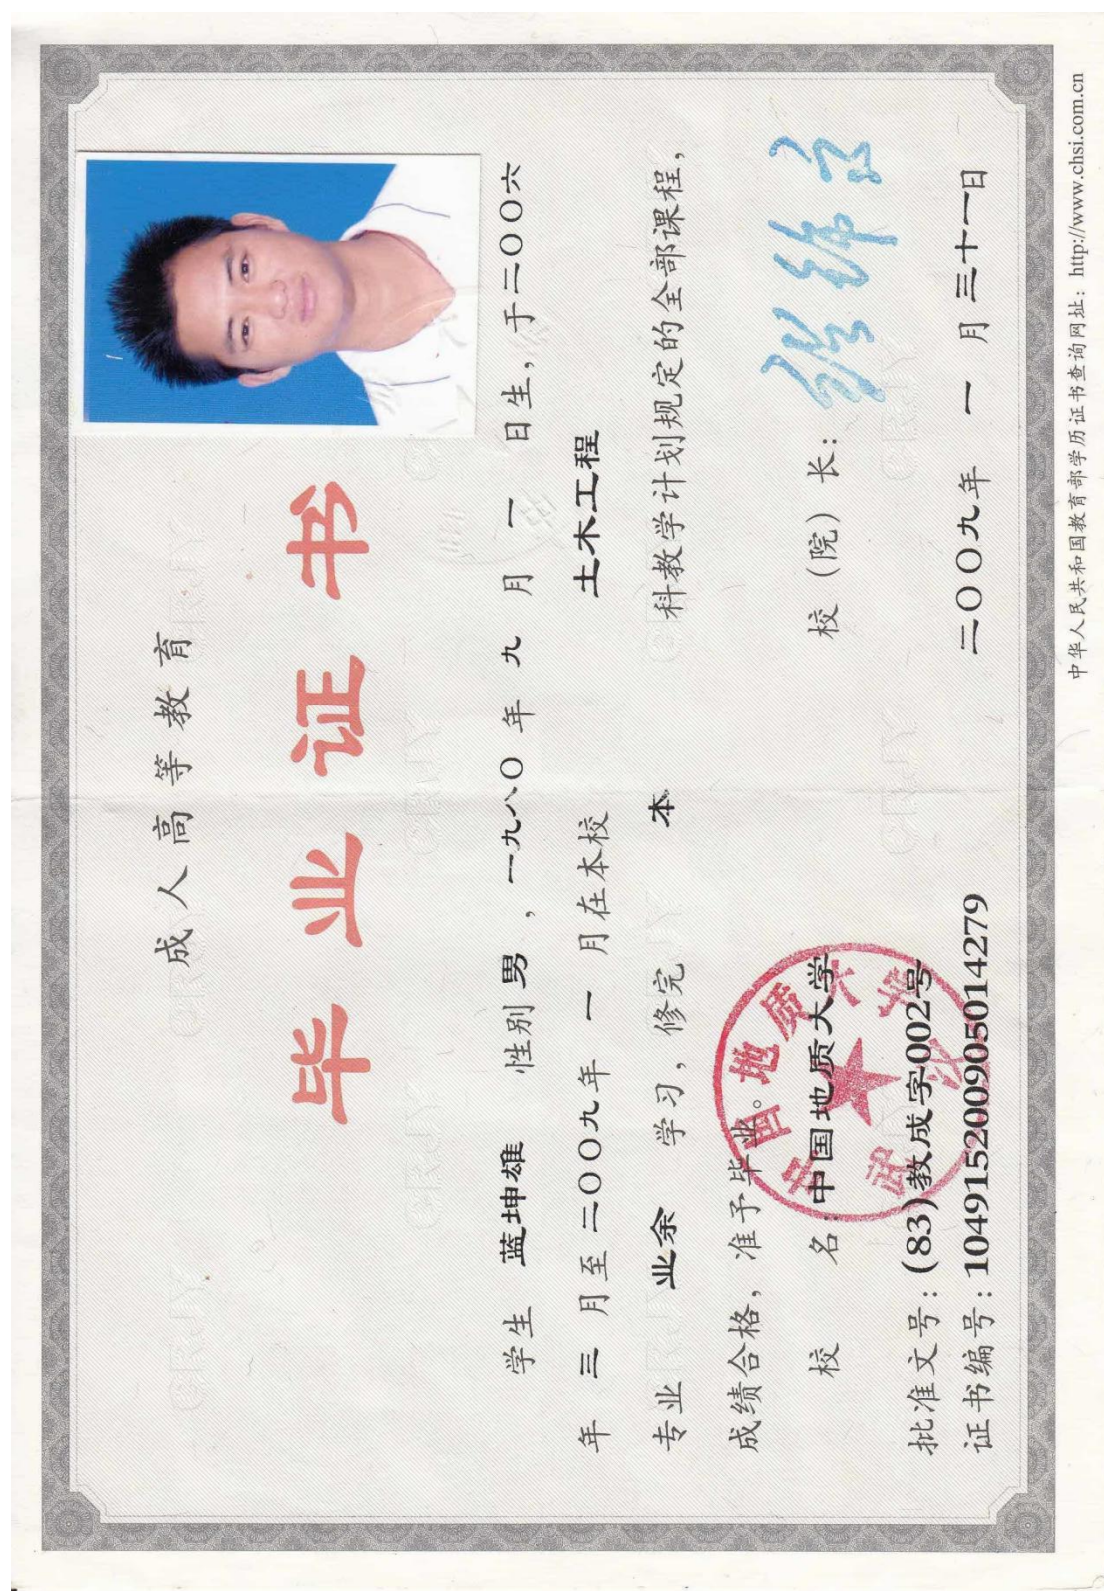 成人高等教育
毕业证书
学生 蓝坤雄 性别 男 , 一九八〇 年 九 月 一 日生,于二〇〇六
年 三 月至 二〇〇九年 一 月在本校 土木工程
专业 业余 学习, 修完 本 科教学计划规定的全部课程,
成绩合格, 准予毕业。
校 名: 中国地质大学 校 (院) 长:
批准文号: (83)教成字002号
证书编号: 104915200905014279 二〇〇九年 一 月 三十一日
中国地质大学
武汉
中华人民共和国教育部学历证书查询网址: http://www.chsi.com.cn